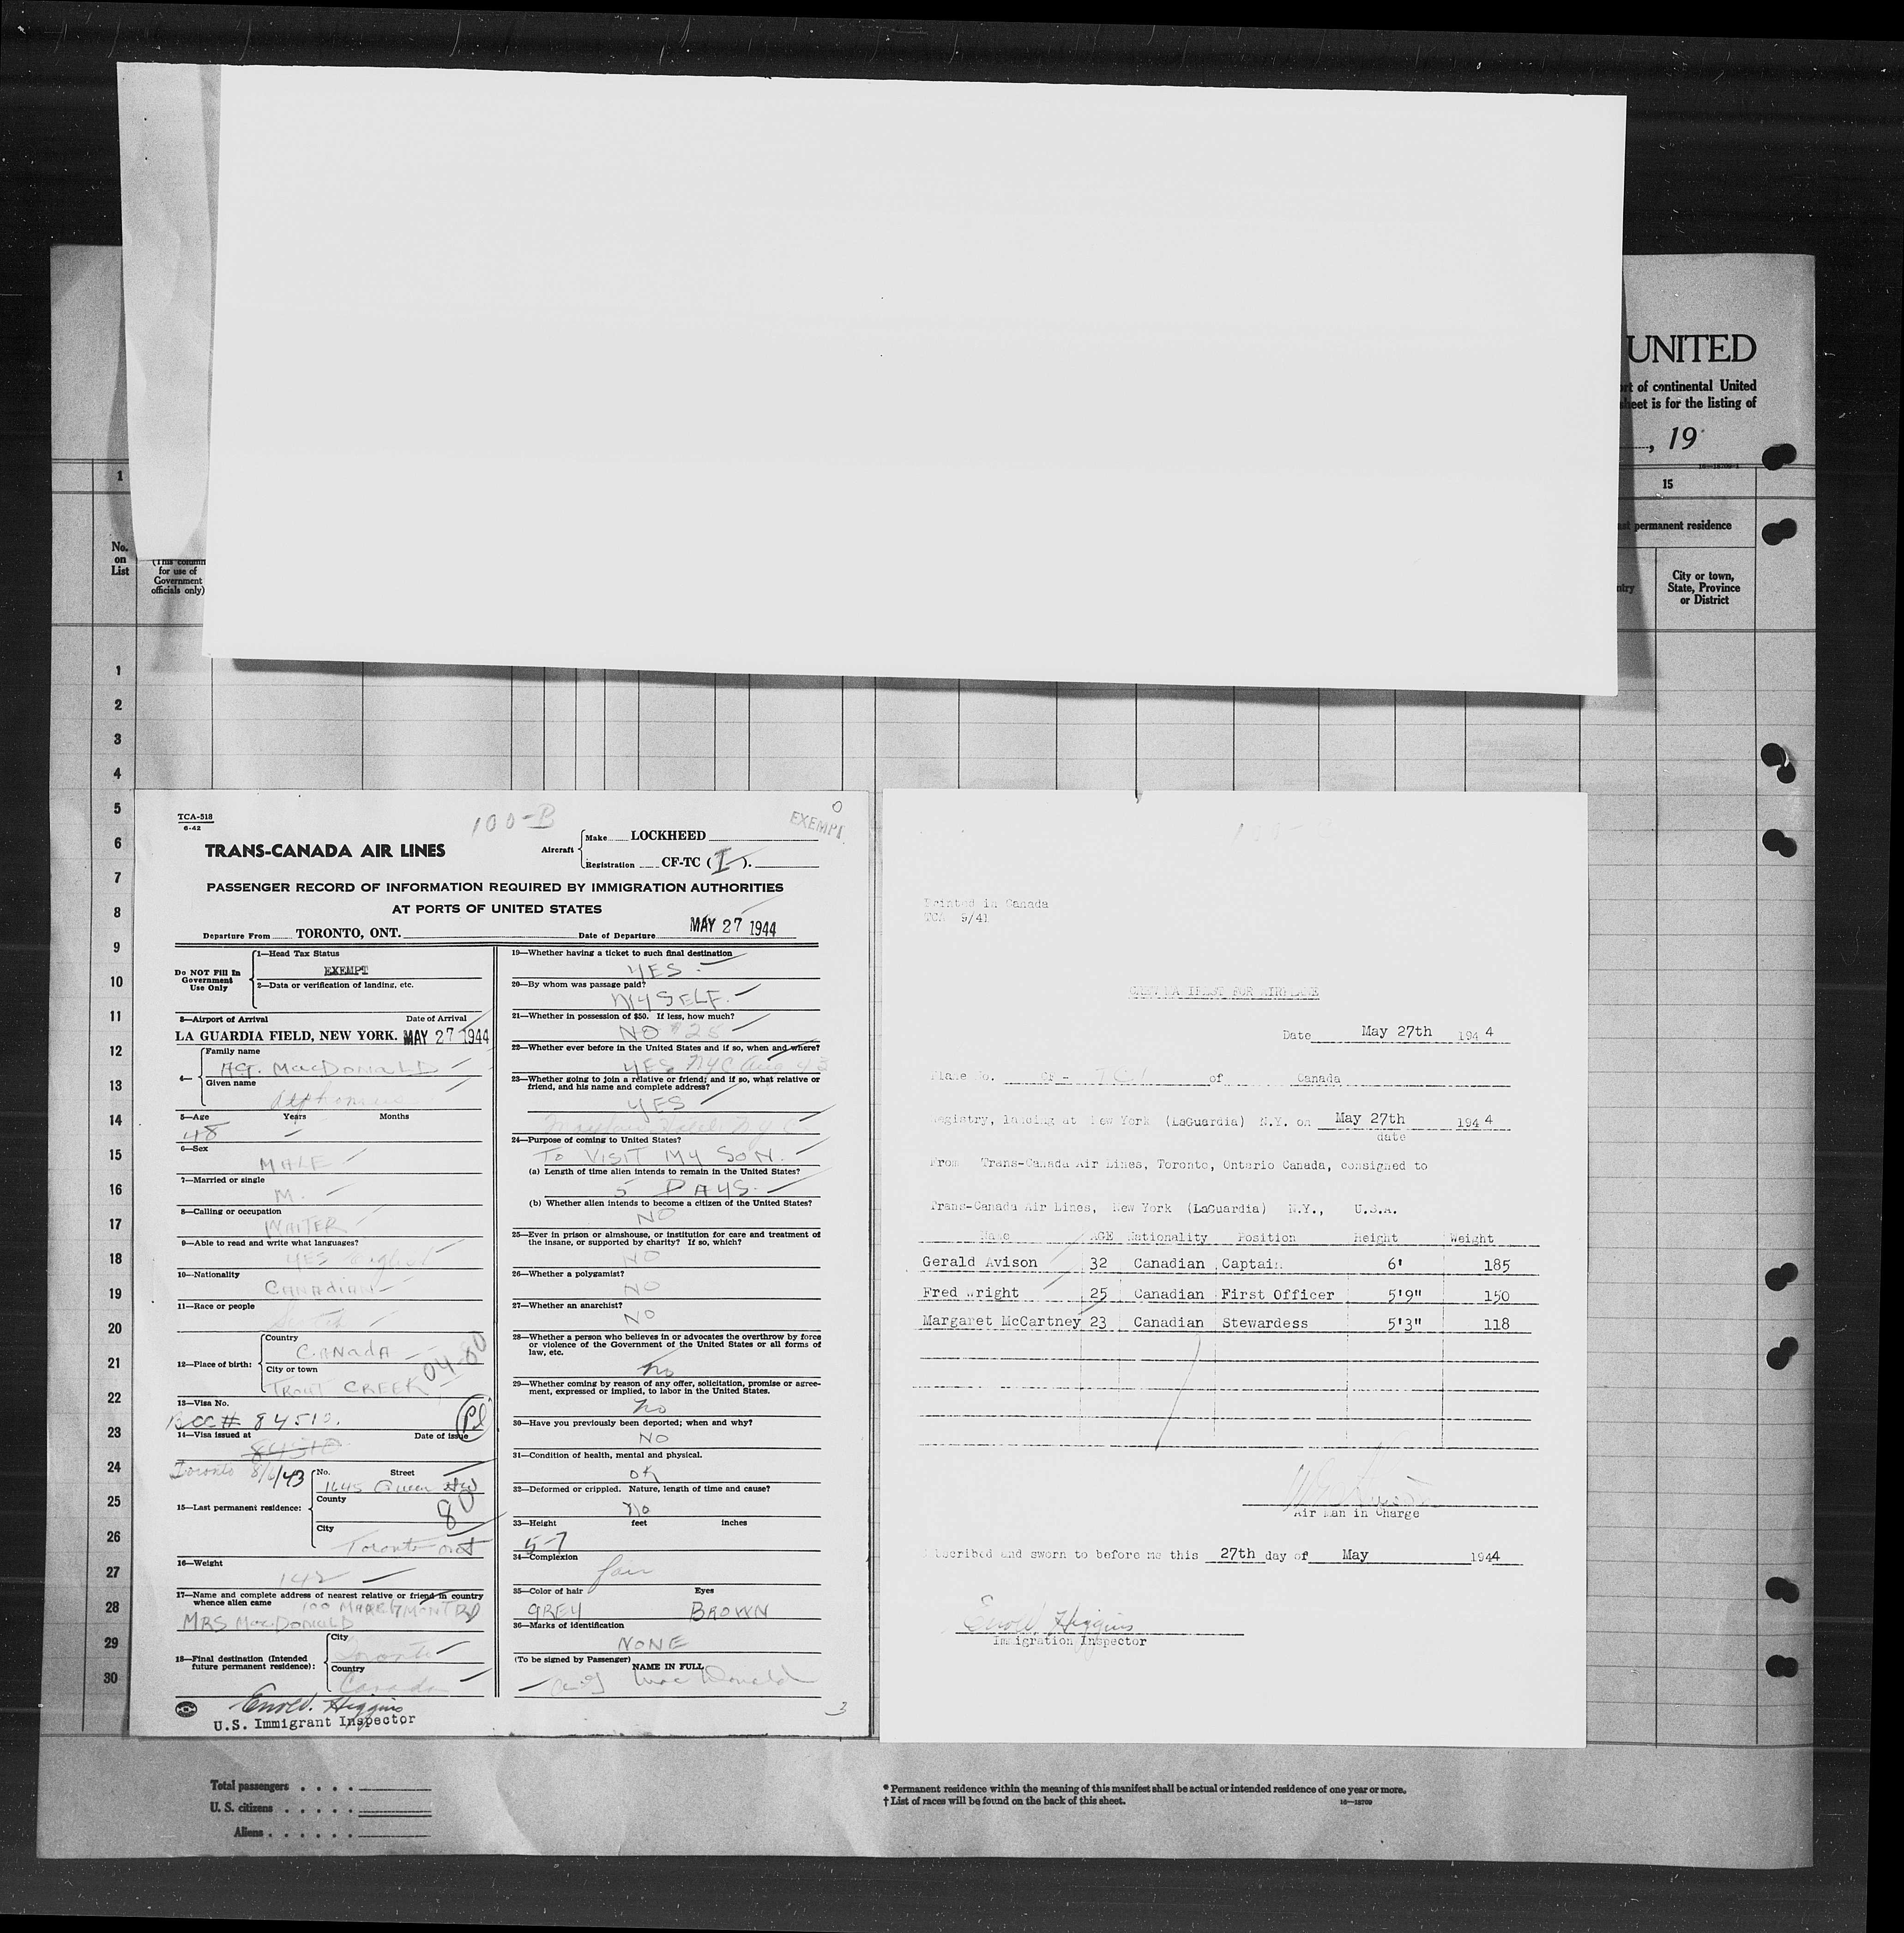 UNITED
rt of continental United
sheet is for the listing of
, 19
16—18709-1
1
15
No.
on
List
(This column
for use of
Government
officials only)
permanent residence
City or town,
State, Province
or District
1
2
3
4
5
6
7
8
9
10
11
12
13
14
15
16
17
18
19
20
21
22
23
24
25
26
27
28
29
30
TCA-518
6-42
100-B
0
EXEMPT
TRANS-CANADA AIR LINES
Aircraft
Make LOCKHEED
Registration CF-TC (I).
PASSENGER RECORD OF INFORMATION REQUIRED BY IMMIGRATION AUTHORITIES
AT PORTS OF UNITED STATES
Departure From TORONTO, ONT. Date of Departure MAY 27 1944
Do NOT Fill In
Government
Use Only
1—Head Tax Status
EXEMPT
2—Data or verification of landing, etc.
3—Airport of Arrival Date of Arrival
LA GUARDIA FIELD, NEW YORK. MAY 27 1944
4—
Family name
MacDONALD
Given name
5—Age Years Months
48
6—Sex
MALE
7—Married or single
M.
8—Calling or occupation
WAITER
9—Able to read and write what languages?
YES English
10—Nationality
CANADIAN
11—Race or people
Scotch
12—Place of birth:
Country
CANADA
City or town
TROUT CREEK
04-80
13—Visa No.
BCC# 84510.
14—Visa issued at Date of issue
84510
Toronto 8/6/43
15—Last permanent residence:
No. Street
1645 Queen
County
80
City
Toronto ont
16—Weight
142
17—Name and complete address of nearest relative or friend in country
whence alien came
MRS MacDONALD
18—Final destination (Intended
future permanent residence):
City
Toronto
Country
Canada
Errol V. Higgins
U.S. Immigrant Inspector
19—Whether having a ticket to such final destination
YES
20—By whom was passage paid?
MYSELF.
21—Whether in possession of $50. If less, how much?
NO $25
22—Whether ever before in the United States and if so, when and where?
YES NYC Aug 43
23—Whether going to join a relative or friend; and if so, what relative or
friend, and his name and complete address?
YES
24—Purpose of coming to United States?
TO VISIT MY SON.
(a) Length of time alien intends to remain in the United States?
5 DAYS.
(b) Whether alien intends to become a citizen of the United States?
NO
25—Ever in prison or almshouse, or institution for care and treatment of
the insane, or supported by charity? If so, which?
NO
26—Whether a polygamist?
NO
27—Whether an anarchist?
NO
28—Whether a person who believes in or advocates the overthrow by force
or violence of the Government of the United States or all forms of
law, etc.
no
29—Whether coming by reason of any offer, solicitation, promise or agree-
ment, expressed or implied, to labor in the United States.
no
30—Have you previously been deported; when and why?
NO
31—Condition of health, mental and physical.
OK
32—Deformed or crippled. Nature, length of time and cause?
No
33—Height feet inches
5-7
34—Complexion
fair
35—Color of hair Eyes
GREY BROWN
36—Marks of identification
NONE
(To be signed by Passenger)
NAME IN FULL
MacDonald
3
Printed in Canada
TCA 9/41
CREW MANIFEST FOR AIRPLANE
Date May 27th 1944
Plane No. CF- TCI of Canada
Registry, landing at New York (LaGuardia) N.Y. on May 27th 1944
date
From Trans-Canada Air Lines, Toronto, Ontario Canada, consigned to
Trans-Canada Air Lines, New York (LaGuardia) N.Y., U.S.A.
Name AGE Nationality Position Height Weight
Gerald Avison 32 Canadian Captain 6' 185
Fred Wright 25 Canadian First Officer 5'9" 150
Margaret McCartney 23 Canadian Stewardess 5'3" 118
Air Man in Charge
Subscribed and sworn to before me this 27th day of May 1944
Errol V. Higgins
Immigration Inspector
Total passengers . . . .
U. S. citizens . . . . .
Aliens . . . . . .
* Permanent residence within the meaning of this manifest shall be actual or intended residence of one year or more.
† List of races will be found on the back of this sheet.
16—18709